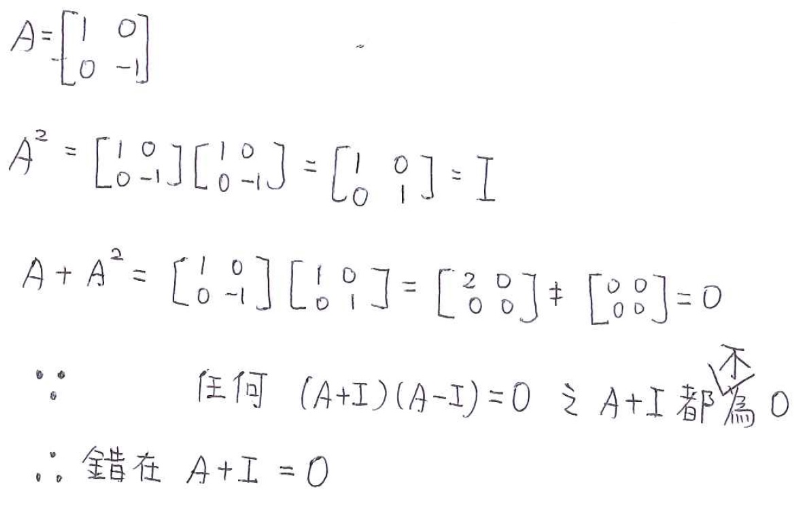 A = [1 0; 0 -1]
A² = [1 0; 0 -1][1 0; 0 -1] = [1 0; 0 1] = I
A + A² = [1 0; 0 -1][1 0; 0 1] = [2 0; 0 0] ≠ [0 0; 0 0] = 0
∵ 任何 (A+I)(A-I)=0 之 A+I 都不為 0
∴ 錯在 A+I = 0